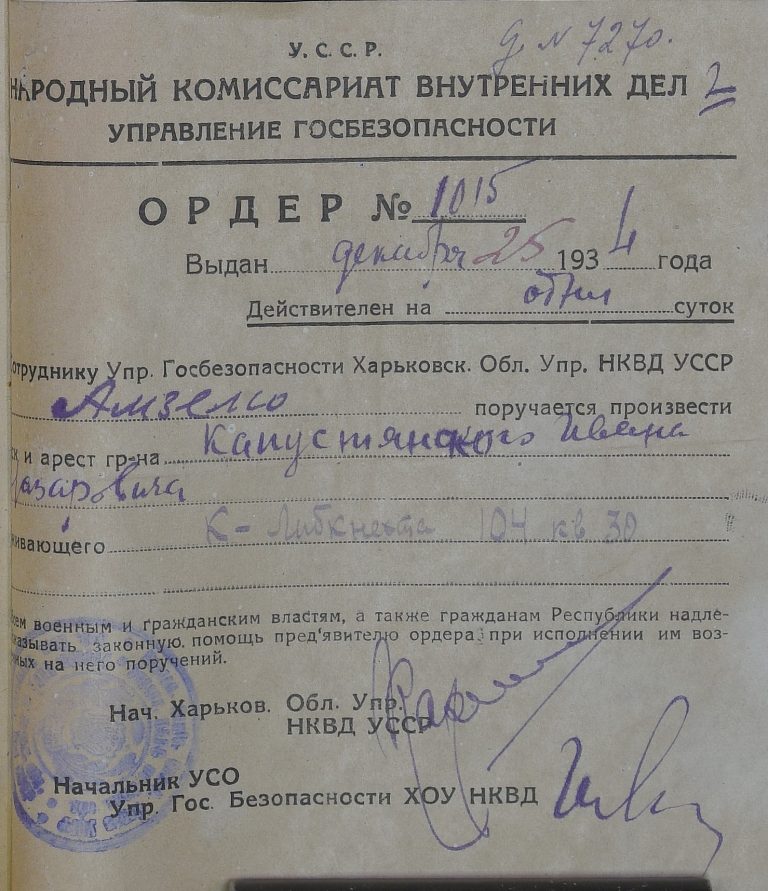 д. N 7270.
У. С. С. Р.
НАРОДНЫЙ КОМИССАРИАТ ВНУТРЕННИХ ДЕЛ 2
УПРАВЛЕНИЕ ГОСБЕЗОПАСНОСТИ
ОРДЕР № 1015
Выдан декабря 25 1934 года
Действителен на суток
отруднику Упр. Госбезопасности Харьковск. Обл. Упр. НКВД УССР
поручается произвести
ск и арест гр-на Капустянского Ивана
Назаровича
живающего К-Либкнехта 104 кв 30
сем военным и гражданским властям, а также гражданам Республики надле-
казывать законную помощь пред'явителю ордера при исполнении им воз-
ных на него поручений.
Нач. Харьков. Обл. Упр.
НКВД УССР
Начальник УСО
Упр. Гос. Безопасности ХОУ НКВД